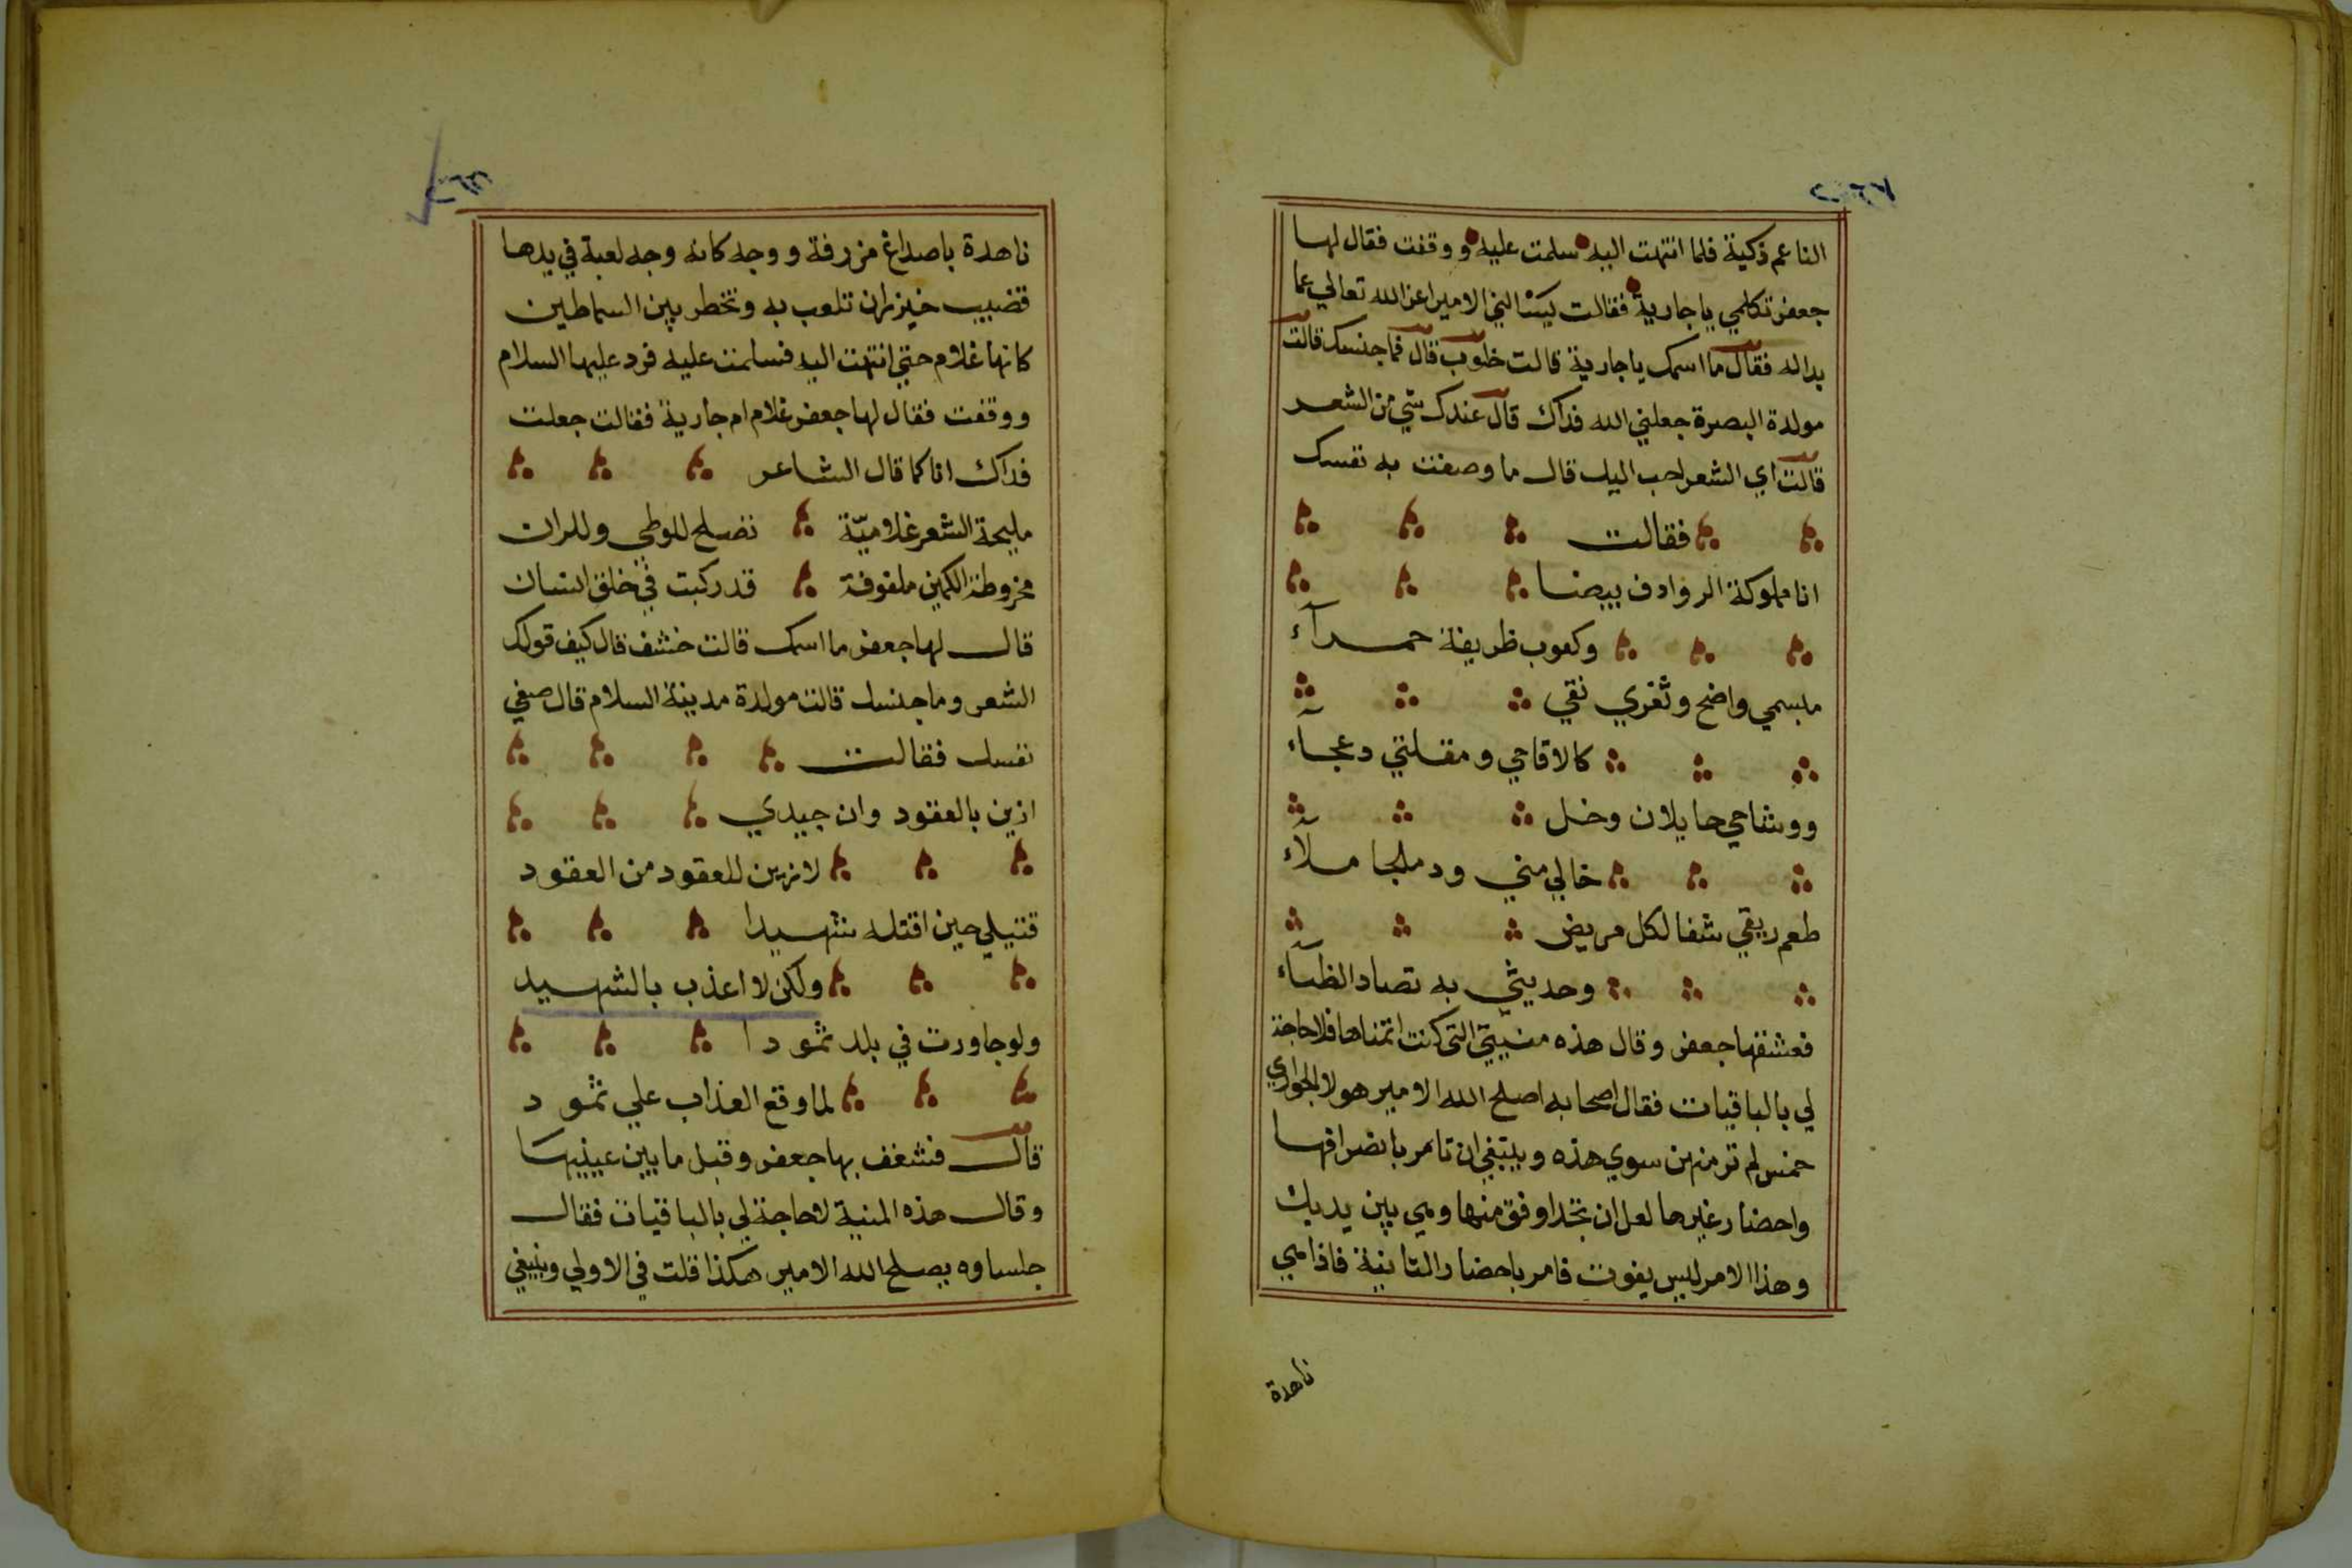 الناعم ذكية فلما انتهت اليه سلمت عليه و ووقفت فقال لها
جعفر تكلمي يا جارية فقالت ليسالني الامير اعز الله تعالي عما
بداله فقال ما اسمك يا جارية قالت خلوب قال فما جنسك قالت
مولدة البصرة جعلني الله فداك قال عندك شي من الشعر
قالت اي الشعر احب اليك قال ما وصفت به نفسك
فقالت
انا مملوكة الروادف بيضا
وكعوب ظريفة حمرآء
مبسمي واضح وثغري نقي
كالاقاحي ومقلتي دعجآء
ووشاحي حايلان وخل
خالي مني ودملجا ملآء
طعم ريقي شفا لكل مريض
وحديثي به تصاد الظبآء
فعشقها جعفر وقال هذه منيتي التي كنت اتمناها فلا حاجة
لي بالباقيات فقال اصحابه اصلح الله الامير هولا الجواري
خمس لم تر منهن سوي هذه وينبغي ان تامر بانصرافها
واحضار غيرها لعل ان تجد اوفق منها وهي بين يديك
وهذا الامر ليس يفوت فامر باحضار الثانية فاذا هي
ناهدة
ناهدة باصداغ مزرفة ووجه كانه وجه لعبة في يدها
قضيب خيزران تلعب به وتخطر بين السماطين
كانها غلام حتي انتهت اليه فسلمت عليه فرد عليها السلام
ووقفت فقال لها جعفر غلام ام جارية فقالت جعلت
فداك انا كما قال الشاعر
مليحة الشعر غلاميّة تصلح للوطي وللران
مخروطة الكمين ملفوفة قد ركبت في خلق انسان
قال لها جعفر ما اسمك قالت خشف قال كيف قولك
الشعر وما جنسك قالت مولدة مدينة السلام قال صفي
نفسك فقالت
ازين بالعقود وان جيدي
لازين للعقود من العقود
قتيلي حين اقتله شهيدا
ولكن لا اعذب بالشهيد
ولو جاورت في بلد ثمودا
لما وقع العذاب علي ثمود
قال فشغف بها جعفر وقبل ما بين عينيها
وقال هذه المنية لا حاجة لي بالباقيات فقال
جلساوه يصلح الله الامير هكذا قلت في الاولي وينبغي